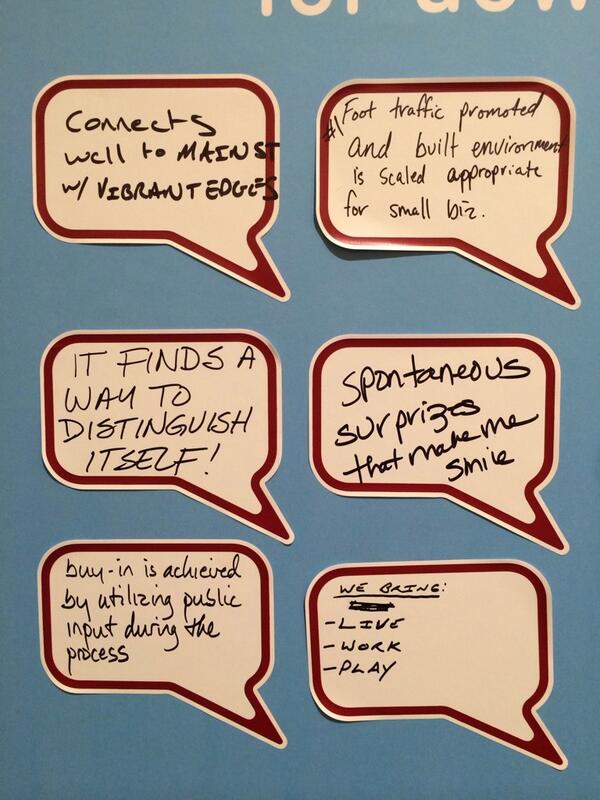 for dow
Connects
well to MAIN ST
w/ VIBRANT EDGES
#1 Foot traffic promoted
and built environment
is scaled appropriate
for small biz.
IT FINDS A
WAY TO
DISTINGUISH
ITSELF!
Spontaneous
surprizes
that make me
smile
buy-in is achieved
by utilizing public
input during the
process
WE BRING:
-LIVE
-WORK
-PLAY